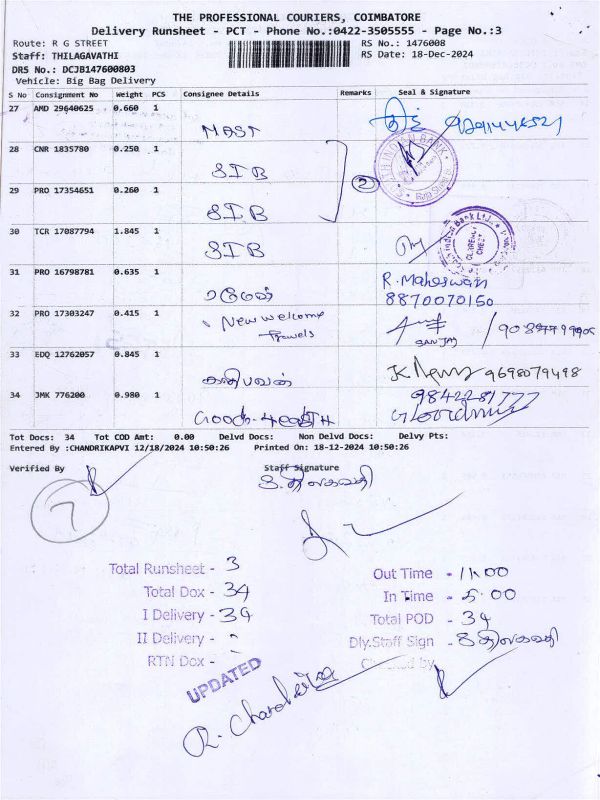 THE PROFESSIONAL COURIERS, COIMBATORE
Delivery Runsheet - PCT - Phone No.:0422-3505555 - Page No.:3
Route: R G STREET
RS No.: 1476008
Staff: THILAGAVATHI
RS Date: 18-Dec-2024
DRS No.: DCJB147600803
Vehicle: Big Bag Delivery
S No Consignment No Weight PCS Consignee Details Remarks Seal & Signature
27 AMD 29640625 0.660 1
MAST
28 CNR 1835780 0.250 1
SIB
2
29 PRO 17354651 0.260 1
SIB
30 TCR 17087794 1.845 1
SIB
31 PRO 16798781 0.635 1
ரமேஷ்
R. Maheswari
8870070150
32 PRO 17303247 0.415 1
New welcome
SANJAY
33 EDQ 12762057 0.845 1
கதிபவன்
9698079498
34 JMK 776200 0.980 1
9842281777
Tot Docs: 34 Tot COD Amt: 0.00 Delvd Docs: Non Delvd Docs: Delvy Pts:
Entered By :CHANDRIKAPVI 12/18/2024 10:50:26 Printed On: 18-12-2024 10:50:26
Verified By Staff Signature
7
Total Runsheet - 3
Total Dox - 34
I Delivery - 34
II Delivery -
RTN Dox -
Out Time - 11.00
In Time - 5.00
Total POD - 34
Dly.Staff Sign -
Checked by
UPDATED